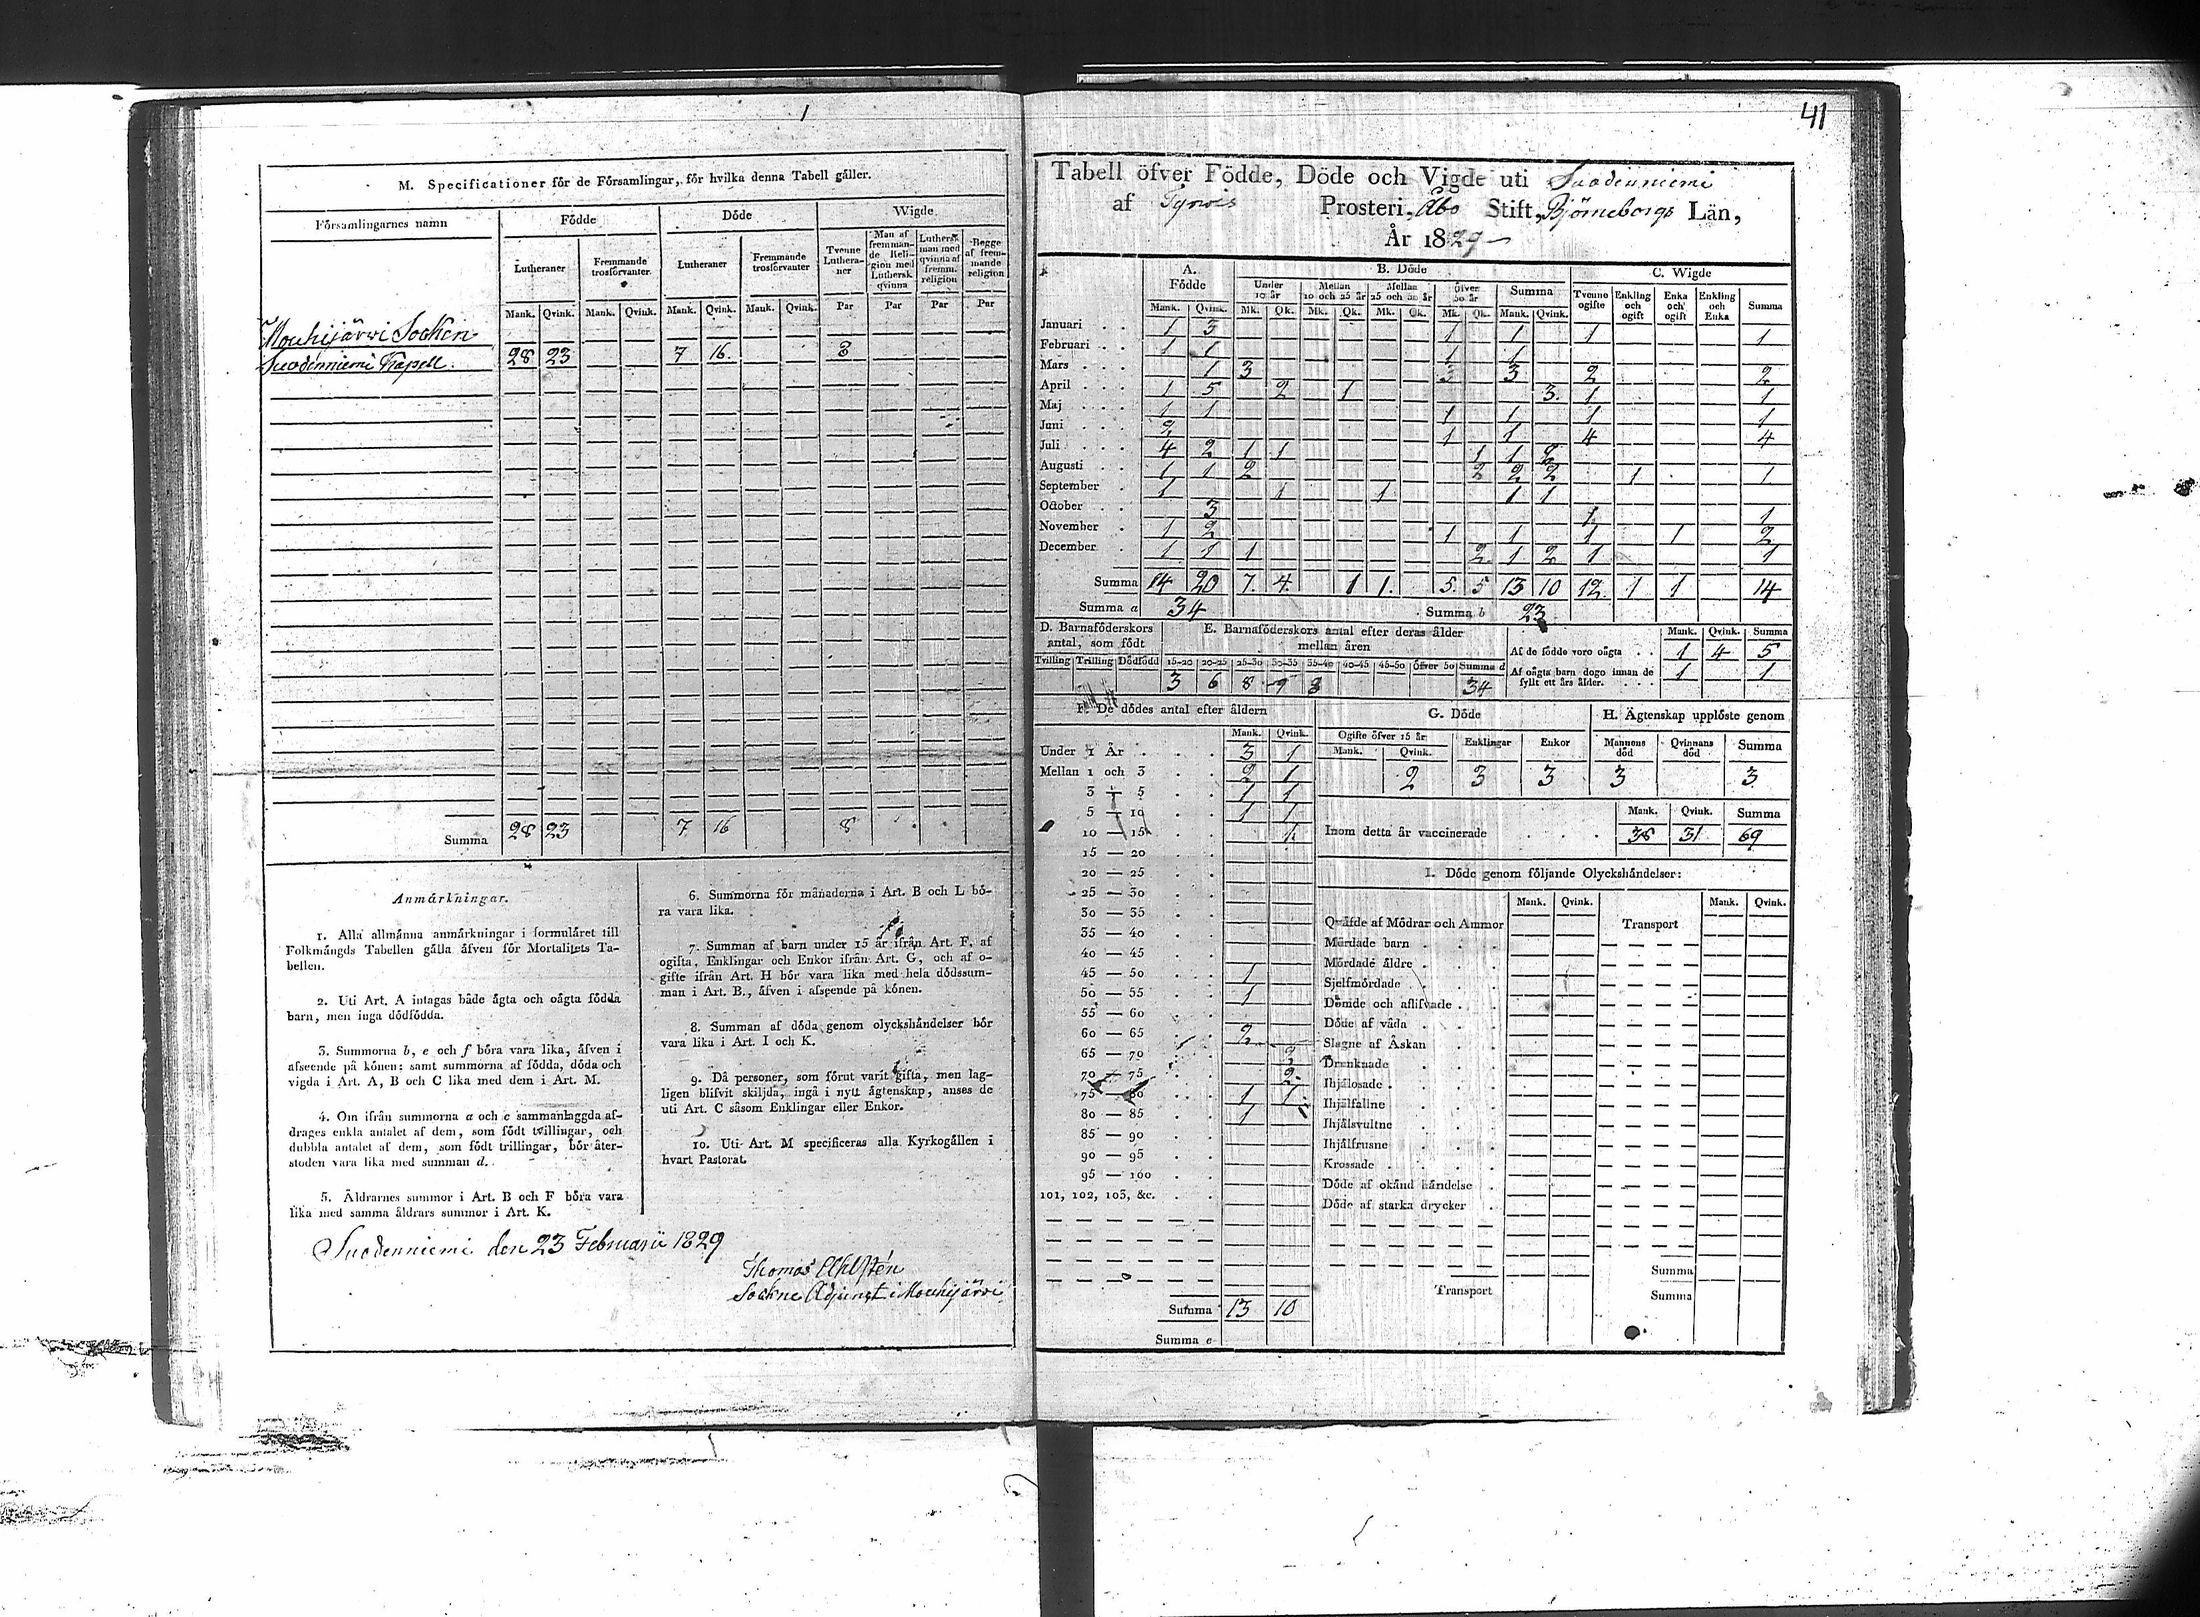 1
M. Specificationer för de Församlingar, för hvilka denna Tabell gäller.
Församlingarnes namn Födde Döde Wigde
Lutheraner Fremmande trosförvanter Lutheraner Fremmande trosförvanter Tvenne Lutheraner Man af fremmande Religion med Luthersk qvinna Luthersk man med qvinna af fremm. religion Begge af fremmande religion
Mank. Qvink. Mank. Qvink. Mank. Qvink. Mank. Qvink. Par Par Par Par
Mouhijärvi Socken
Suodenniemi Kapell. 28 23 7 16. 8
Summa 28 23 7 16 8
Anmärkningar.
1. Alla allmänna anmärkningar i formuläret till
Folkmängds Tabellen gälla äfven för Mortalitets Ta-
bellen.
2. Uti Art. A intagas både ägta och oägta födda
barn, men inga dödfödda.
3. Summorna b, e och f böra vara lika, äfven i
afseende på könen: samt summorna af födda, döda och
vigda i Art. A, B och C lika med dem i Art. M.
4. Om ifrån summorna a och c sammanlaggda af-
drages enkla antalet af dem, som födt tvillingar, och
dubbla antalet af dem, som födt trillingar, bör åter-
stoden vara lika med summan d.
5. Åldrarnes summor i Art. B och F böra vara
lika med samma åldrars summor i Art. K.
6. Summorna för månaderna i Art. B och L bö-
ra vara lika.
7. Summan af barn under 15 år ifrån Art. F, af
ogifta, Enklingar och Enkor ifrån Art. G, och af o-
gifte ifrån Art. H bör vara lika med hela dödssum-
man i Art. B., äfven i afseende på könen.
8. Summan af döda genom olyckshändelser bör
vara lika i Art. I och K.
9. Då personer, som förut varit gifta, men lag-
ligen blifvit skiljda, ingå i nytt ägtenskap, anses de
uti Art. C såsom Enklingar eller Enkor.
10. Uti Art. M specificeras alla Kyrkogällen i
hvart Pastorat.
Suodenniemi den 23 Februarii 1829
Thomas Ahlstén
Sockne Adjunct i Mouhijärvi
41
Tabell öfver Födde, Döde och Vigde uti Suodenniemi
af Tyrvis Prosteri, Åbo Stift, Björneborgs Län,
År 1829
A. Födde B. Döde C. Wigde
Under 10 år Mellan 10 och 25 år Mellan 25 och 50 år Öfver 50 år Summa Tvenne ogifte Enkling och ogift Enka och ogift Enkling och Enka Summa
Mank. Qvink. Mk. Qk. Mk. Qk. Mk. Qk. Mk. Qk. Mank. Qvink.
Januari 1 3 1 1 1 1
Februari 1 1 1 1
Mars 1 3 3 2 2
April 1 5 2 1 3. 1 1
Maj 1 1 1 1 1 1
Juni 2 1 1 4 4
Juli 4 2 1 1 1 1 2
Augusti 1 1 2 2 2 2 1 1
September 1 1 1 1 1
October 3 1 1
November 1 2 1 1 1 1 2
December 1 1 1 2 1 2 1 1
Summa 14 20 7. 4. 1 1. 5. 5 13 10 12. 1 1 14
Summa a 34 Summa b 23
D. Barnaföderskors antal, som födt
Tvilling Trilling Dödfödd
E. Barnaföderskors antal efter deras ålder mellan åren
15-20 20-25 25-30 30-35 35-40 40-45 45-50 öfver 50 Summa d
3 6 8 9 8 34
Mank. Qvink. Summa
Af de födde voro oägta 1 4 5
Af oägta barn dogo innan de fyllt ett års ålder. 1 1
F. De dödes antal efter åldern
Mank. Qvink.
Under 1 År 3 1
Mellan 1 och 3 2 1
3 — 5 1 1
5 — 10 1 1
10 — 15 1
15 — 20
20 — 25
25 — 30
30 — 35
35 — 40
40 — 45
45 — 50 1
50 — 55 1
55 — 60
60 — 65 2
65 — 70 2
70 — 75 2.
75 — 80 1 1
80 — 85 1
85 — 90
90 — 95
95 — 100
101, 102, 103, &c.
Summa 13 10
Summa e
G. Döde
Ogifte öfver 15 år Enklingar Enkor
Mank. Qvink.
2 3 3
H. Ägtenskap upplöste genom
Mannens död Qvinnans död Summa
3 3
Mank. Qvink. Summa
Inom detta år vaccinerade 38 31 69
I. Döde genom följande Olyckshändelser:
Mank. Qvink. Mank. Qvink.
Qväfde af Mödrar och Ammor Transport
Mördade barn
Mördade äldre
Sjelfmördade
Dömde och aflifvade
Döde af våda
Slagne af Åskan
Drunknade
Ihjälosade
Ihjälfallne
Ihjälsvultne
Ihjälfrusne
Krossade
Döde af okänd händelse
Döde af starka drycker
Summa
Transport Summa